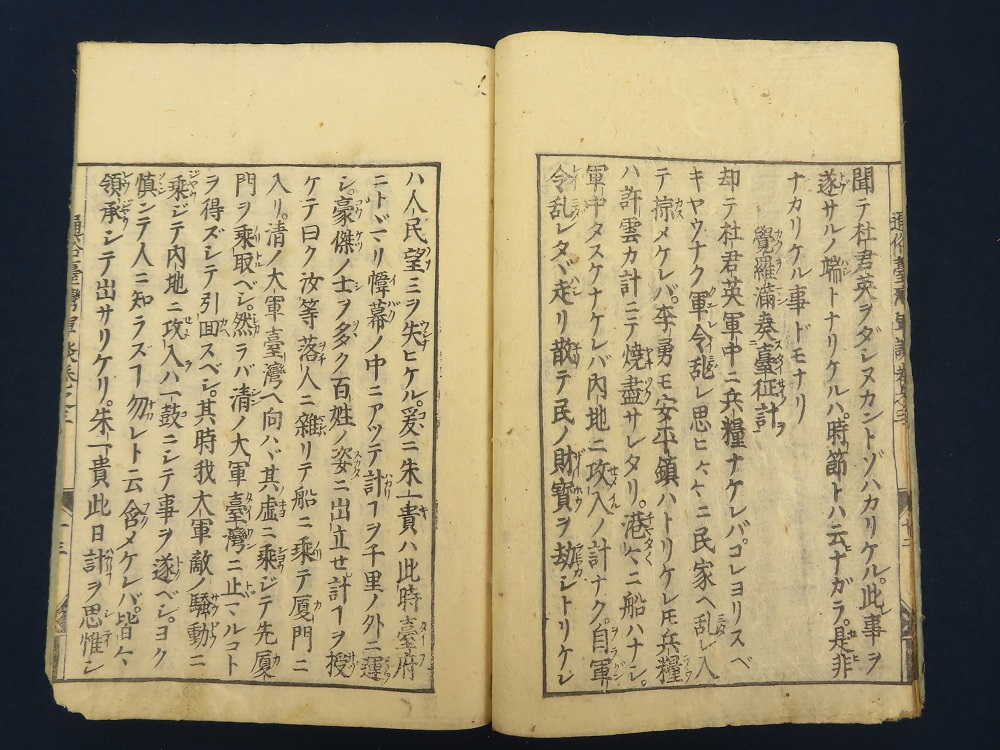 聞テ杜君英ヲダシヌカントゾハカリケル。此事ヲ
遂サルノ端トナリケルハ。時節トハ云ナガラ。是非
ナカリケル事ドモナリ
覺羅滿奏臺征計ヲ
却テ杜君英軍中ニ兵糧ナケレバ。コレヨリスベ
キヤウナク軍令乱レ思ヒ〱ニ民家ヘ乱レ入
テ掠メケレバ。李勇モ安平鎮ハトリケレ𪜈兵糧
ハ許雲カ計ニテ燒盡サレタリ。港〱ニ船ハナシ。
軍中タスケナケレバ内地ニ攻入ノ計ナク。自軍
令乱レタヾ走リ散テ民ノ財寶ヲ劫シトリケレ
ハ人民望ミヲ失ヒケル。爰ニ朱一貴ハ此時臺府
ニトヾマリ幃幕ノ中ニアツテ計ヿヲ千里ノ外ニ運
シ。豪傑ノ士ヲ多ク百姓ノ姿ニ出立セ計ヿヲ授
ケテ曰ク汝等落人ニ雜リテ船ニ乘テ厦門ニ
入リ。清ノ大軍臺灣ヘ向ハヾ其虚ニ乘ジテ先厦
門ヲ乘取ベシ。然ラバ清ノ大軍臺灣ニ止マルコト
ヲ得ズシテ引回スベシ。其時我大軍敵ノ騒動ニ
乘ジテ内地ニ攻入ハ一鼓ニシテ事ヲ遂ベシ。ヨク
慎ンテ人ニ知ラスヿ勿レト云含メケレバ。皆〱
領承シテ出サリケリ。朱一貴此日計ヲ思惟シ
通俗臺灣軍談卷之三
十二
通俗臺灣軍談卷之三
十三